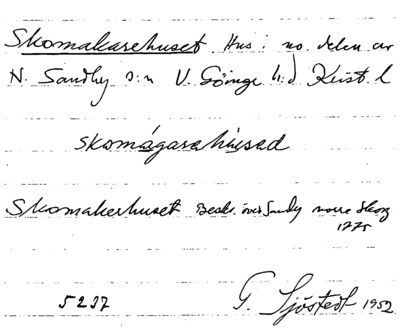 Skomakarehuset Hus i no. delen av
N. Sandby s:n V. Göinge h:d Krist. l
skomágarahùsad
Skomakerhuset Beskr. över Sandby norre Skog
1775
5237 G. Sjöstedt 1952